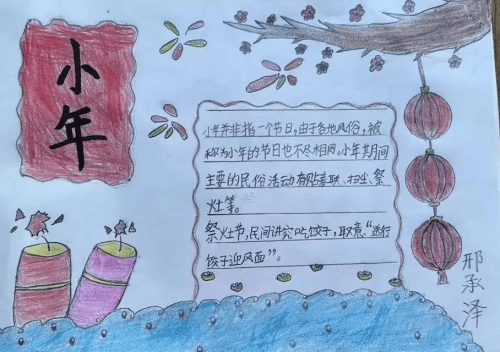 小年
小年并非指一个节日,由于各地风俗,被
称为小年的节日也不尽相同。小年期间
主要的民俗活动有贴春联、扫尘、祭
灶等。
祭灶节,民间讲究吃饺子,取意“送行
饺子迎风面”。
邢承泽